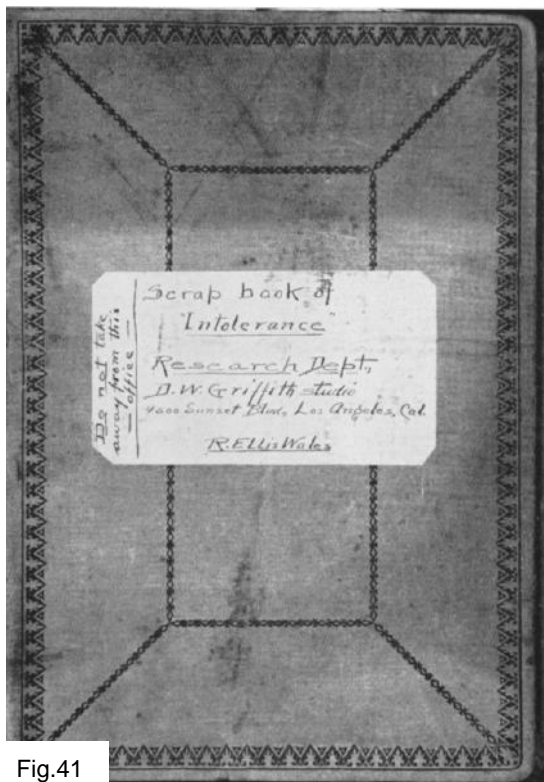 Do not take
away from this
— office —
Scrap book of
"Intolerance"
Research Dept,
D. W. Griffith studio
4500 Sunset Blvd, Los Angeles, Cal.
R. Ellis Wales
Fig.41